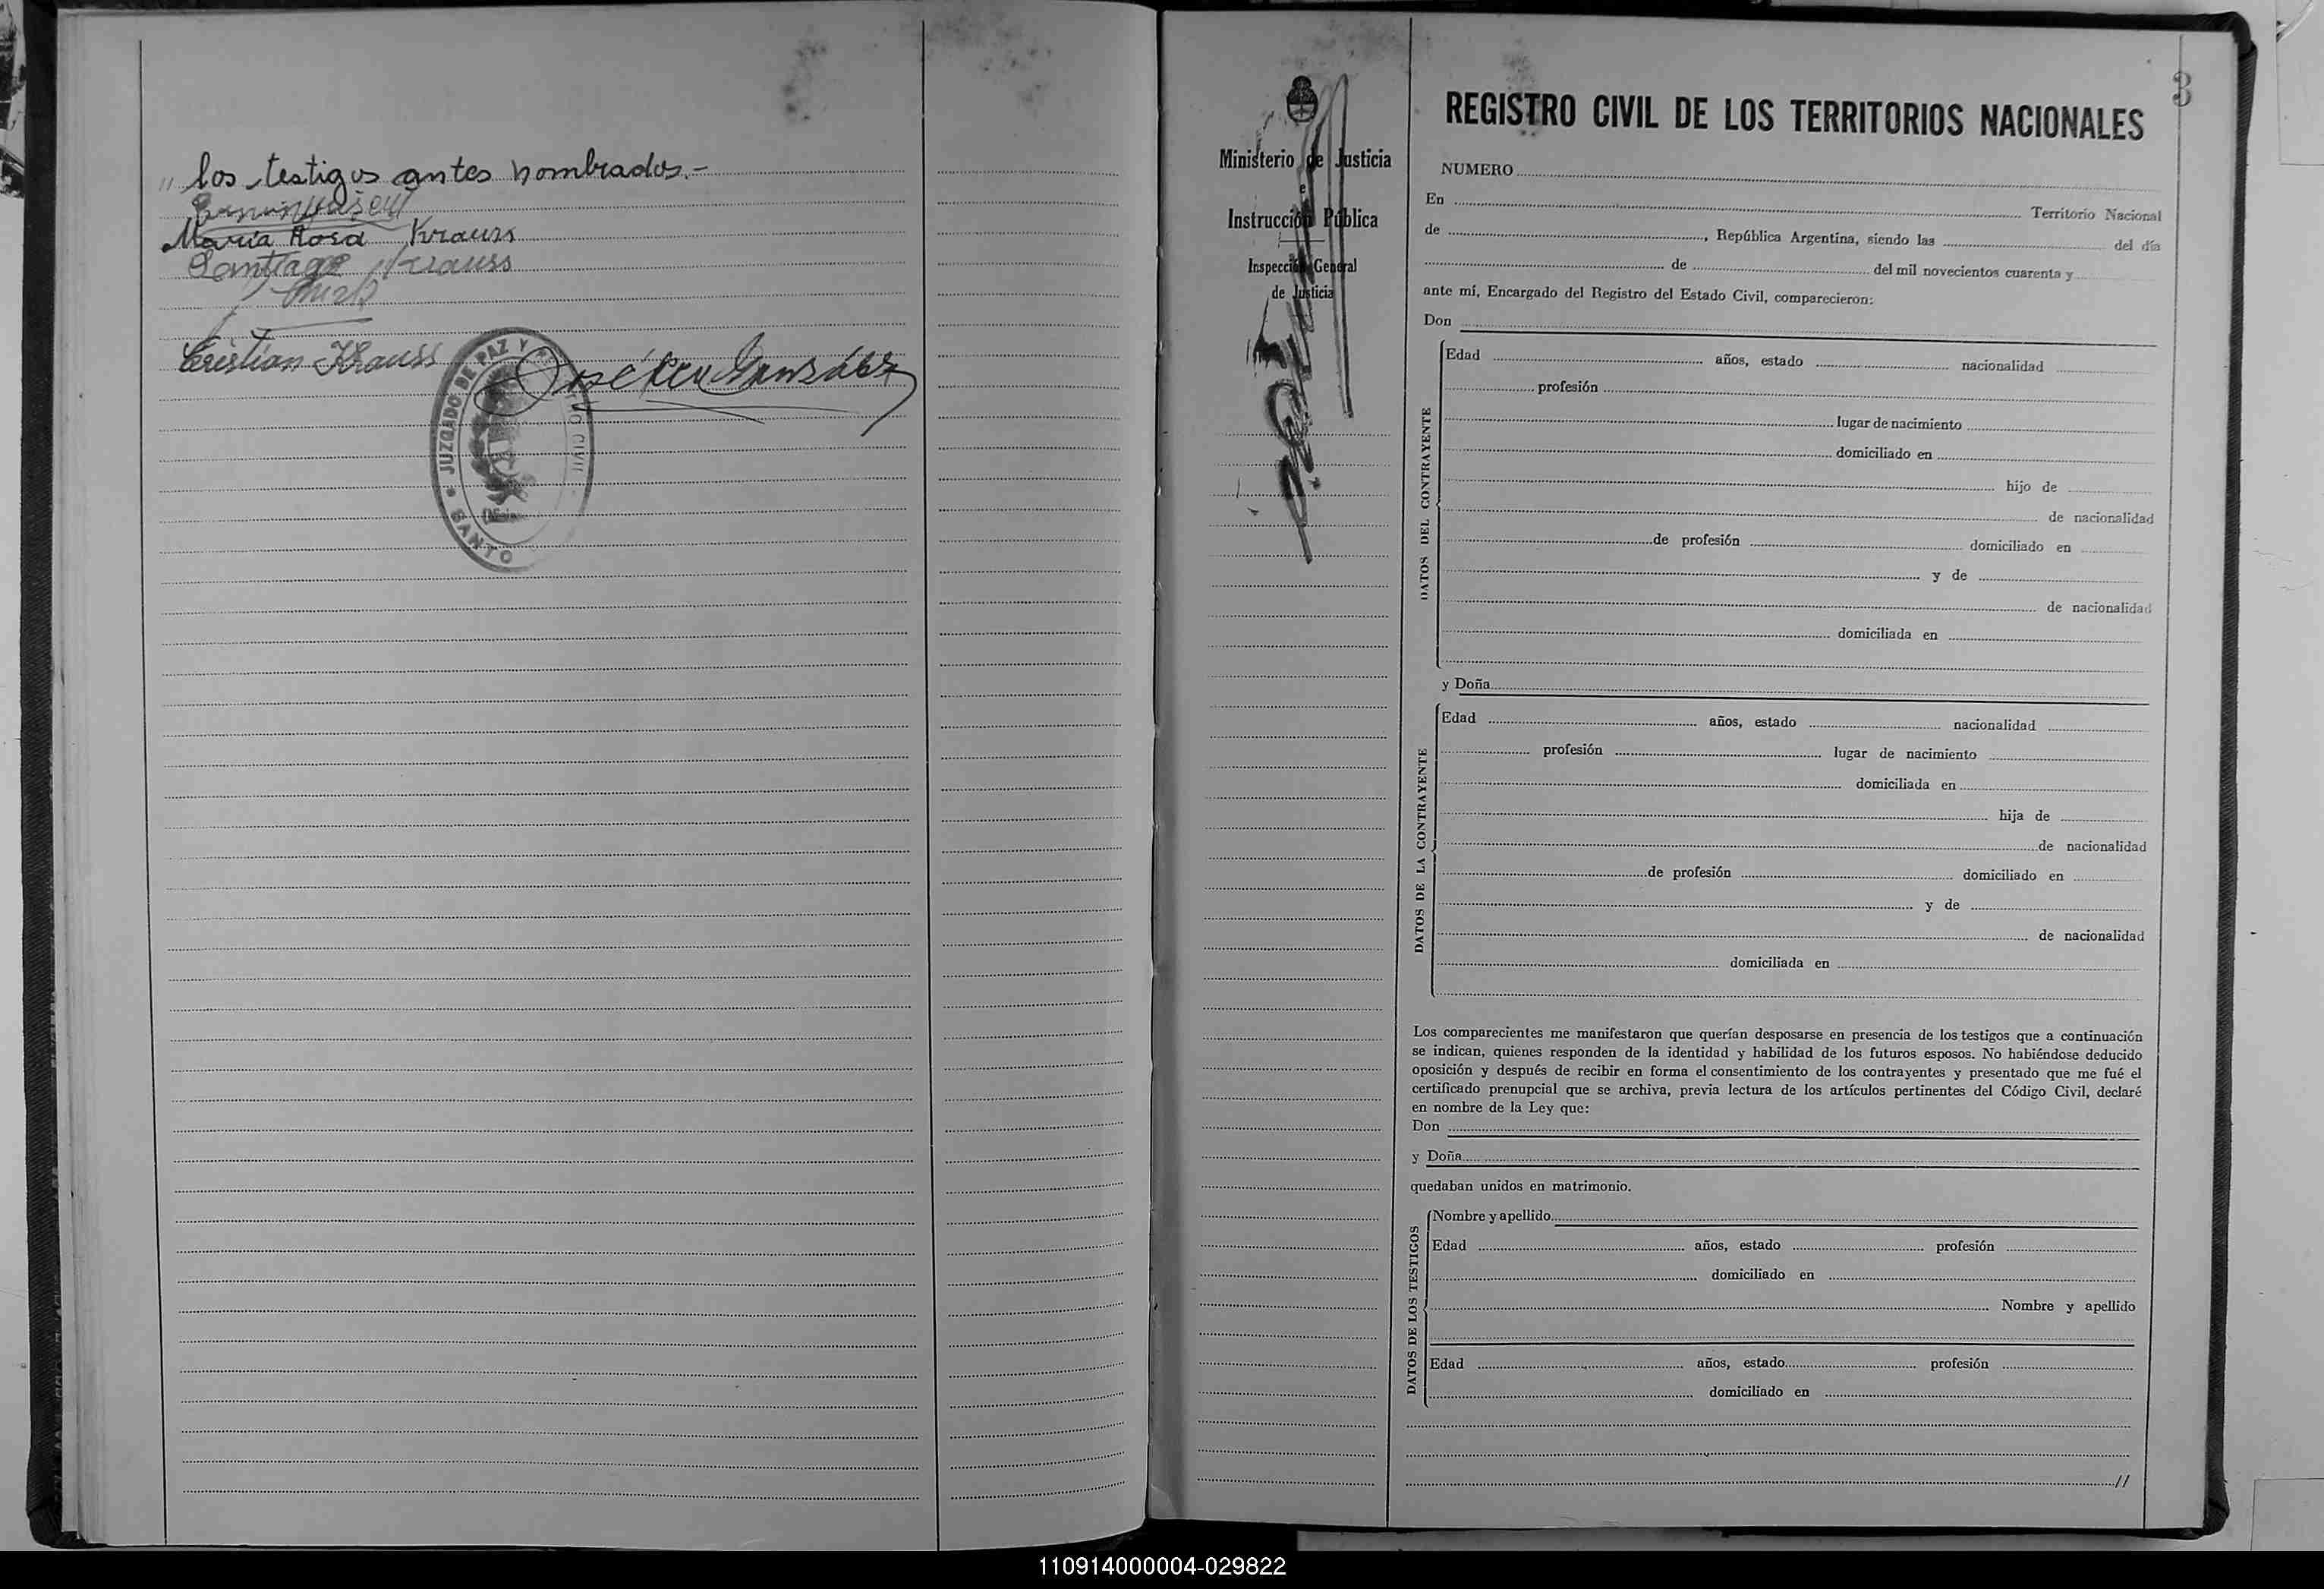 " los testigos antes nombrados.-
María Rosa Krauss
Santiago Krauss
Cristian Krauss
José González
JUZGADO DE PAZ Y
CIVIL
SANTO
3
Ministerio de Justicia
e
Instrucción Pública
Inspección General
de Justicia
REGISTRO CIVIL DE LOS TERRITORIOS NACIONALES
NUMERO
En Territorio Nacional
de , República Argentina, siendo las del día
de del mil novecientos cuarenta y
ante mí, Encargado del Registro del Estado Civil, comparecieron:
Don
DATOS DEL CONTRAYENTE
Edad años, estado nacionalidad
profesión
lugar de nacimiento
domiciliado en
hijo de
de nacionalidad
de profesión domiciliado en
y de
de nacionalidad
domiciliada en
y Doña
DATOS DE LA CONTRAYENTE
Edad años, estado nacionalidad
profesión lugar de nacimiento
domiciliada en
hija de
de nacionalidad
de profesión domiciliado en
y de
de nacionalidad
domiciliada en
Los comparecientes me manifestaron que querían desposarse en presencia de los testigos que a continuación
se indican, quienes responden de la identidad y habilidad de los futuros esposos. No habiéndose deducido
oposición y después de recibir en forma el consentimiento de los contrayentes y presentado que me fué el
certificado prenupcial que se archiva, previa lectura de los artículos pertinentes del Código Civil, declaré
en nombre de la Ley que:
Don
y Doña
quedaban unidos en matrimonio.
DATOS DE LOS TESTIGOS
Nombre y apellido
Edad años, estado profesión
domiciliado en
Nombre y apellido
Edad años, estado profesión
domiciliado en
//
110914000004-029822